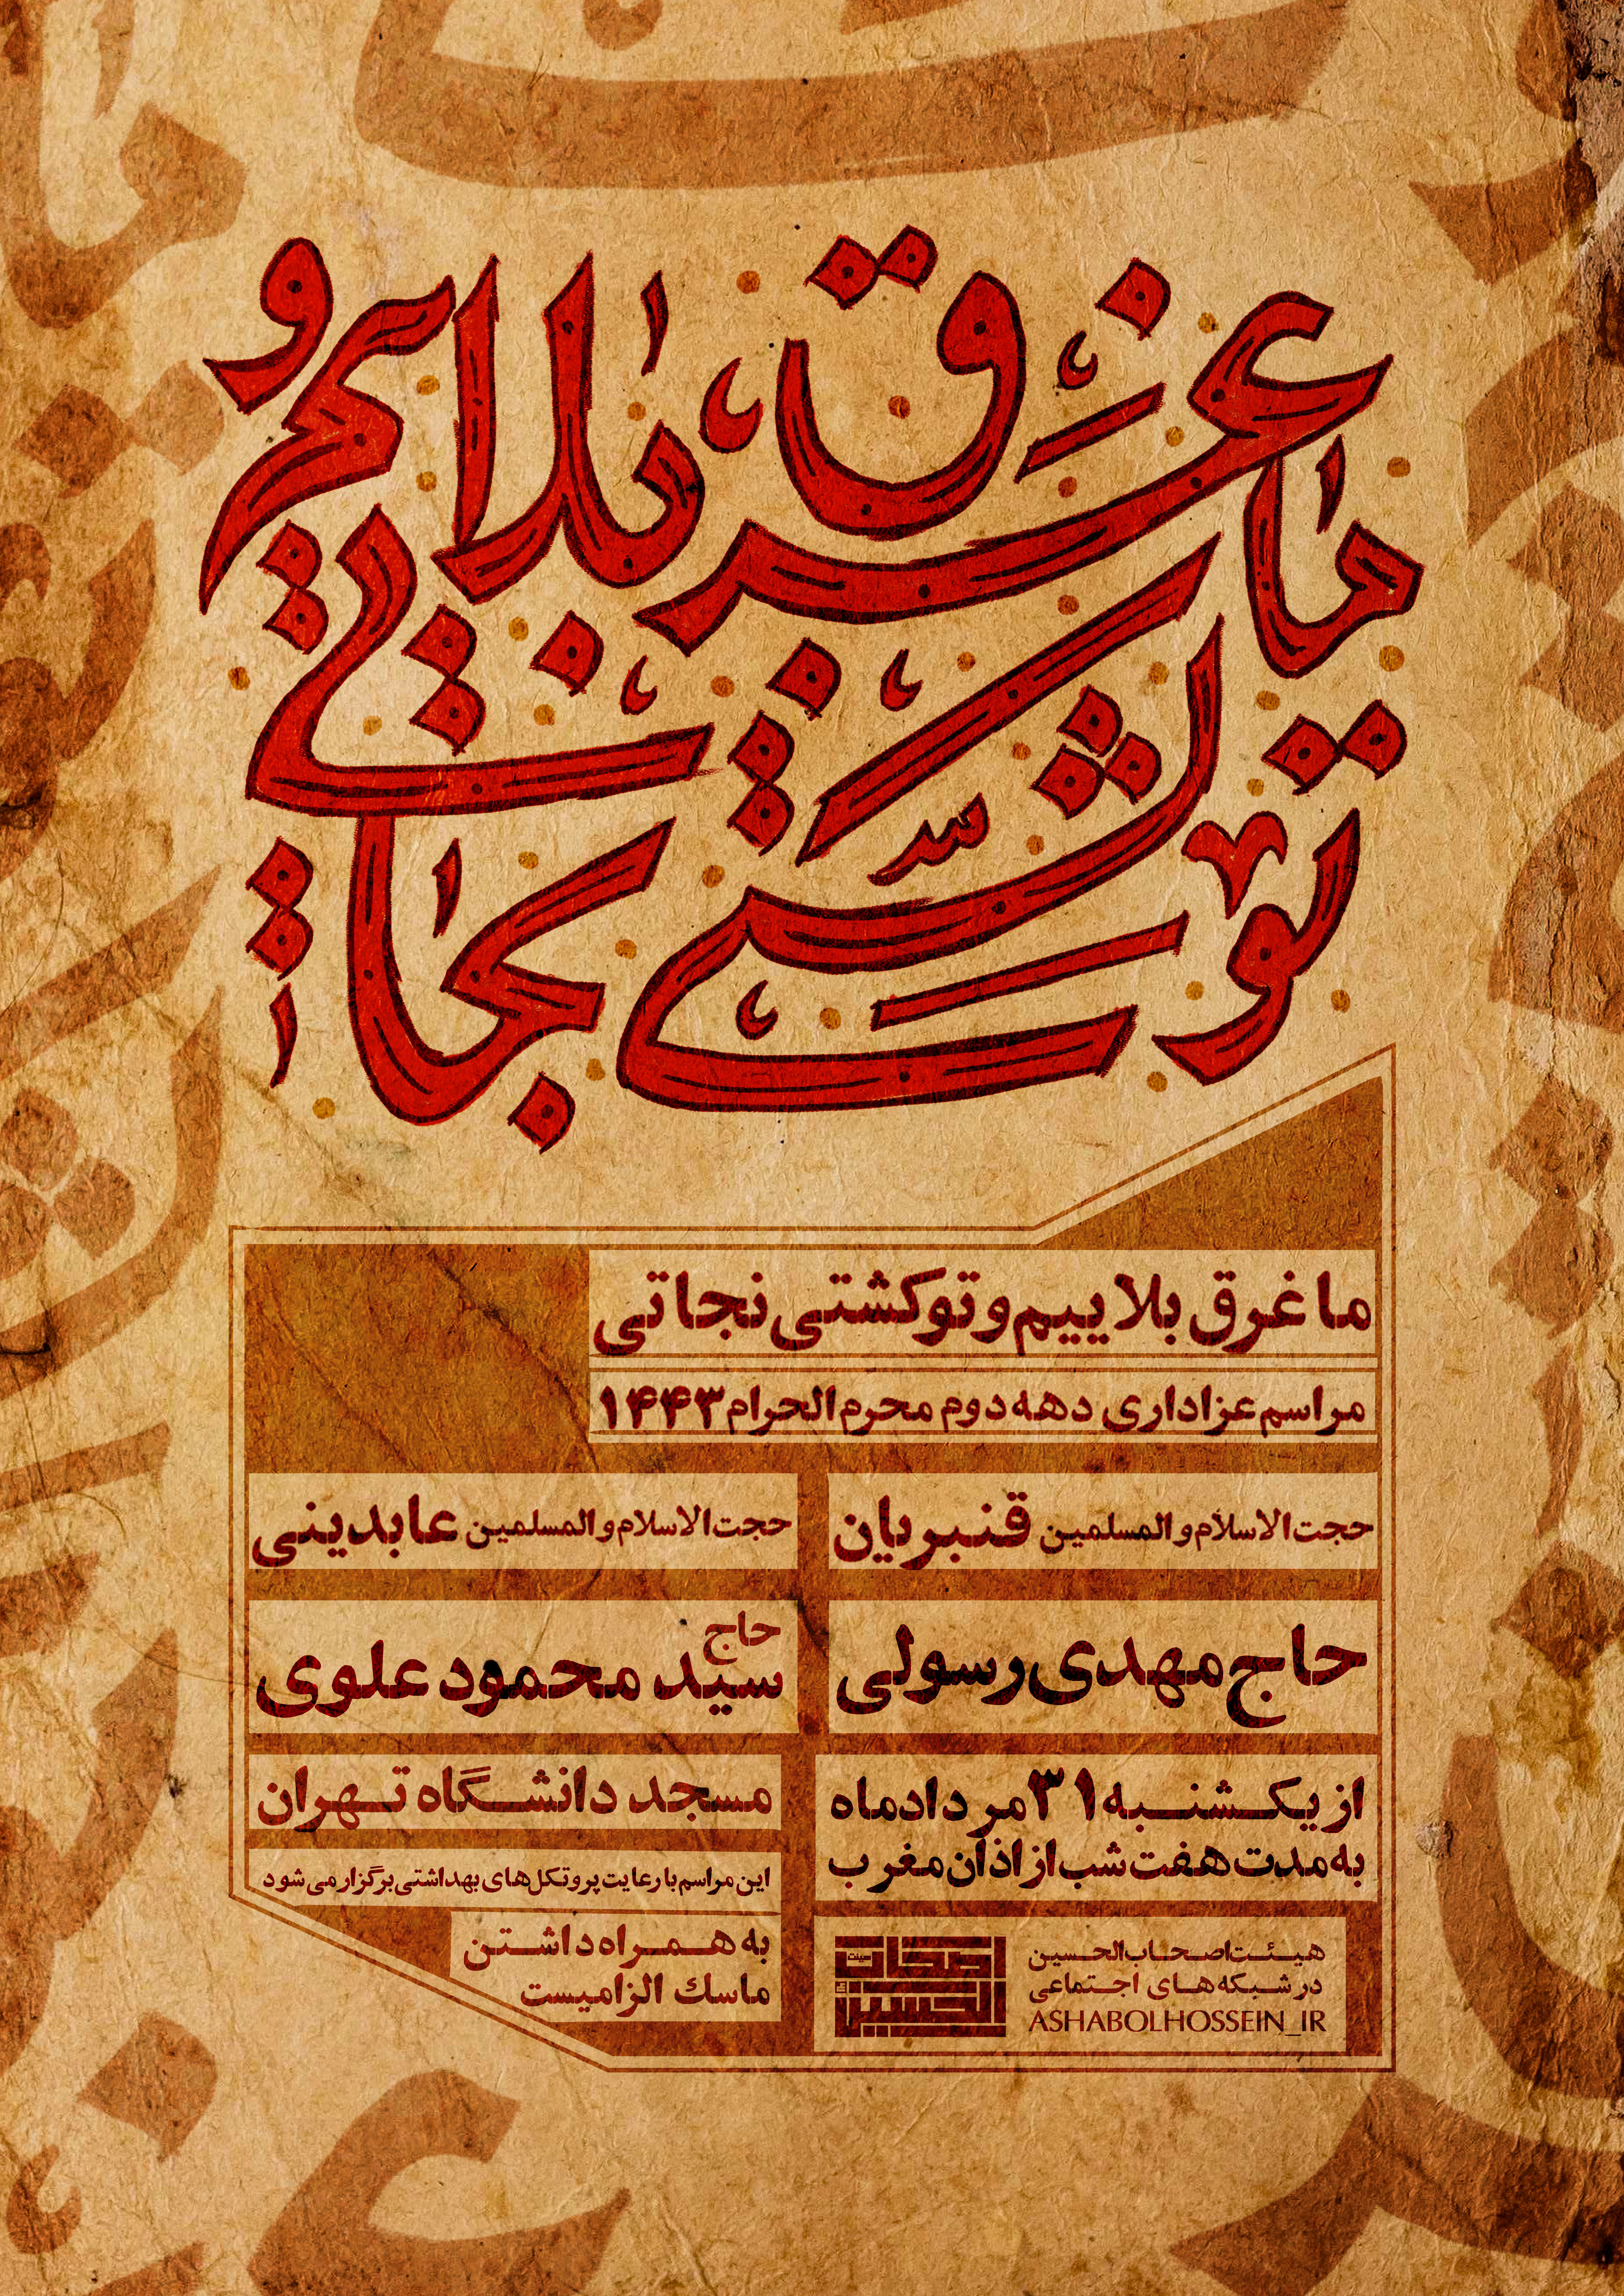 ما غرق بلاییم و
تو کشتی نجاتی
ما غرق بلاییم و تو کشتی نجاتی
مراسم عزاداری دهه دوم محرم الحرام ۱۴۴۳
حجت الاسلام و المسلمین قنبریان
حجت الاسلام و المسلمین عابدینی
حاج مهدی رسولی
حاج سید محمود علوی
از یکشنبه ۳۱ مرداد ماه
به مدت هفت شب از اذان مغرب
مسجد دانشگاه تهران
این مراسم با رعایت پروتکل‌های بهداشتی برگزار می شود
به همراه داشتن
ماسك الزامیست
هیئت اصحاب الحسین
در شبکه های اجتماعی
ASHABOLHOSSEIN_IR
هیئت
اصحاب
الحسین